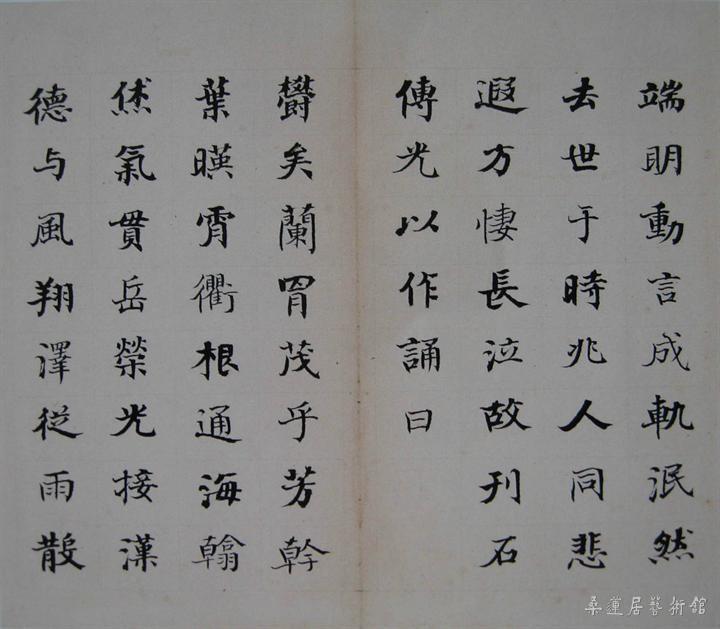 端明動言成軌泯然
去世于時兆人同悲
遐方悽長泣故刊石
傳光以作誦曰
欝矣蘭胃茂乎芳幹
葉暎霄衢根通海翰
恷氣貫岳榮光接漢
德与風翔澤從雨散
桑蓮居藝術館